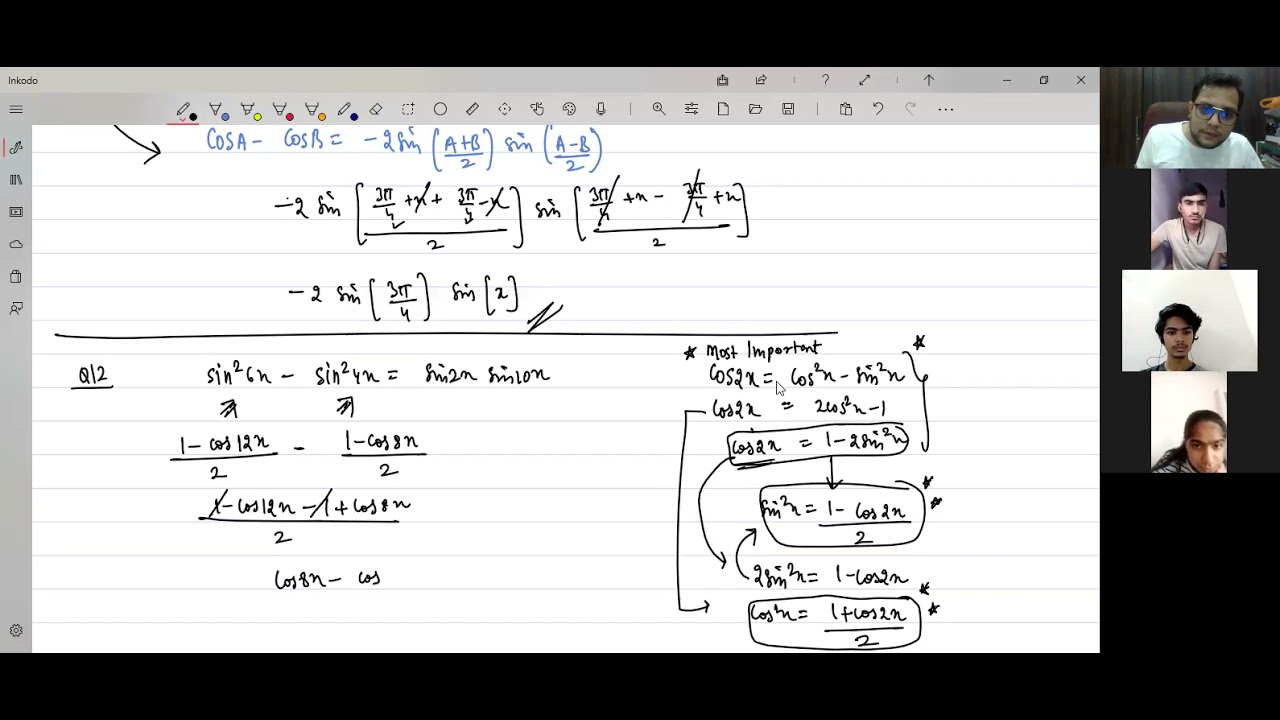 Inkodo
CosA - CosB = -2 sin (A+B/2) sin (A-B/2)
-2 sin [3π/4 + x + 3π/4 - x / 2] sin [3π/4 + x - 3π/4 + x / 2]
-2 sin [3π/4] sin [x]
Q12 sin²6x - sin²4x = sin2x sin10x
1 - cos12x / 2 - 1 - cos8x / 2
1 - cos12x - 1 + cos8x / 2
Cos8x - cos
* Most Important *
Cos2x = cos²x - sin²x
Cos2x = 2cos²x - 1
cos2x = 1 - 2sin²x
sin²x = 1 - cos2x / 2 * *
2sin²x = 1 - cos2x
cos²x = 1 + cos2x / 2 * *